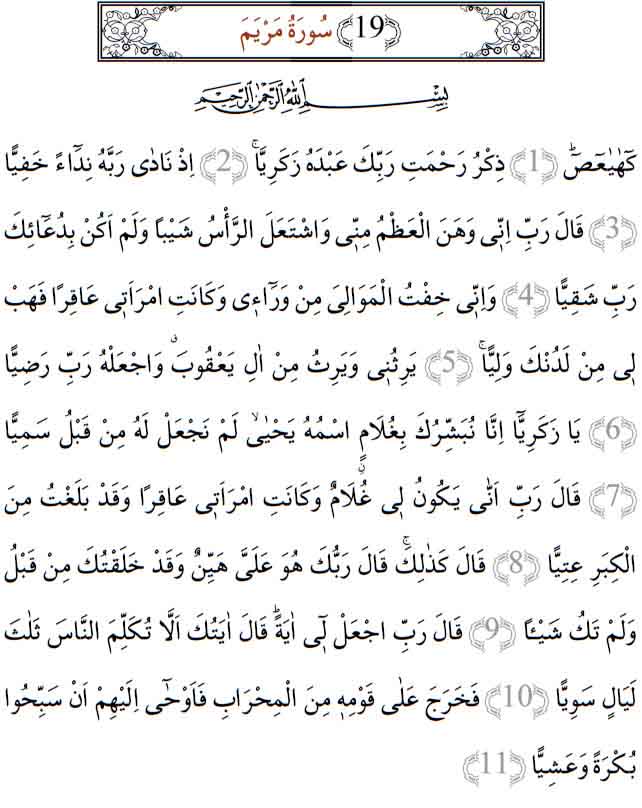 ﴿19﴾ سُورَةُ مَرْيَمَ
بِسْمِ اللّٰهِ الرَّحْمٰنِ الرَّحٖيمِ
كٓهٰيٰعٓصٓ ۜ ﴿1﴾ ذِكْرُ رَحْمَتِ رَبِّكَ عَبْدَهُ زَكَرِيَّاۚ ﴿2﴾ اِذْ نَادٰى رَبَّهُ نِدَٓاءً خَفِيًّا
﴿3﴾ قَالَ رَبِّ اِنّٖى وَهَنَ الْعَظْمُ مِنّٖى وَاشْتَعَلَ الرَّأْسُ شَيْبًا وَلَمْ اَكُنْ بِدُعَٓائِكَ
رَبِّ شَقِيًّا ﴿4﴾ وَاِنّٖى خِفْتُ الْمَوَالِىَ مِنْ وَرَٓاءٖى وَكَانَتِ امْرَاَتٖى عَاقِرًا فَهَبْ
لٖى مِنْ لَدُنْكَ وَلِيًّاۚ ﴿5﴾ يَرِثُنٖى وَيَرِثُ مِنْ اٰلِ يَعْقُوبَۗ وَاجْعَلْهُ رَبِّ رَضِيًّا
﴿6﴾ يَا زَكَرِيَّٓا اِنَّا نُبَشِّرُكَ بِغُلَامٍ اسْمُهُ يَحْيٰىۙ لَمْ نَجْعَلْ لَهُ مِنْ قَبْلُ سَمِيًّا
﴿7﴾ قَالَ رَبِّ اَنّٰى يَكُونُ لٖى غُلَامٌ وَكَانَتِ امْرَاَتٖى عَاقِرًا وَقَدْ بَلَغْتُ مِنَ
الْكِبَرِ عِتِيًّا ﴿8﴾ قَالَ كَذٰلِكَۚ قَالَ رَبُّكَ هُوَ عَلَىَّ هَيِّنٌ وَقَدْ خَلَقْتُكَ مِنْ قَبْلُ
وَلَمْ تَكُ شَيْـًٔا ﴿9﴾ قَالَ رَبِّ اجْعَلْ لٖٓى اٰيَةًۜ قَالَ اٰيَتُكَ اَلَّا تُكَلِّمَ النَّاسَ ثَلٰثَ
لَيَالٍ سَوِيًّا ﴿10﴾ فَخَرَجَ عَلٰى قَوْمِهٖ مِنَ الْمِحْرَابِ فَاَوْحٰٓى اِلَيْهِمْ اَنْ سَبِّحُوا
بُكْرَةً وَعَشِيًّا ﴿11﴾